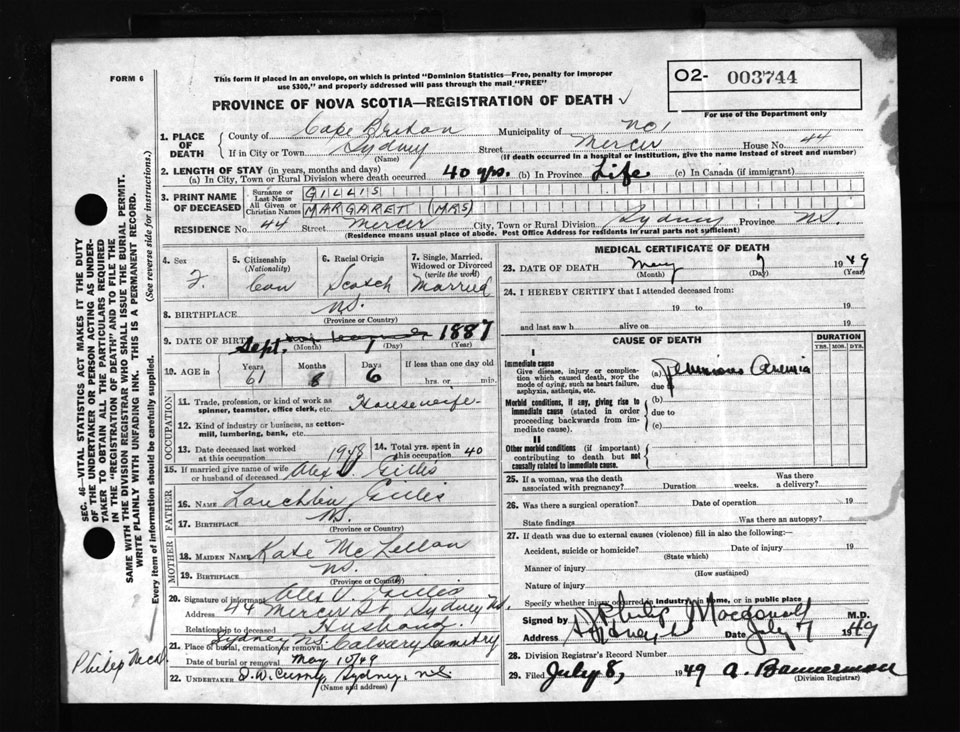 FORM 6
This form if placed in an envelope, on which is printed "Dominion Statistics—Free, penalty for improper
use $300," and properly addressed will pass through the mail "FREE"
O2- 003744
For use of the Department only
PROVINCE OF NOVA SCOTIA—REGISTRATION OF DEATH ✓
1. PLACE OF DEATH
County of Cape Breton Municipality of
If in City or Town Sydney Street Mercer House No. 44
(Name) (If death occurred in a hospital or institution, give the name instead of street and number)
2. LENGTH OF STAY (in years, months and days)
(a) In City, Town or Rural Division where death occurred 40 yrs. (b) In Province Life (c) In Canada (if immigrant)
3. PRINT NAME OF DECEASED
Surname or Last Name GILLIS
All Given or Christian Names MARGARET (MRS)
RESIDENCE No. 44 Street Mercer City, Town or Rural Division Sydney Province NS.
(Residence means usual place of abode. Post Office Address for residents in rural parts not sufficient)
4. Sex F.
5. Citizenship (Nationality) Can
6. Racial Origin Scotch
7. Single, Married, Widowed or Divorced (write the word) Married
8. BIRTHPLACE NS.
(Province or Country)
9. DATE OF BIRTH Sept. 1887
(Month) (Day) (Year)
10. AGE in Years 61 Months 8 Days 6 If less than one day old hrs. or min.
OCCUPATION
11. Trade, profession, or kind of work as spinner, teamster, office clerk, etc. Housewife
12. Kind of industry or business, as cotton-mill, lumbering, bank, etc.
13. Date deceased last worked at this occupation 1948 14. Total yrs. spent in this occupation 40
15. If married give name of wife or husband of deceased Alex D. Gillis
FATHER
16. NAME Lauchlin Gillis
17. BIRTHPLACE NS.
(Province or Country)
MOTHER
18. MAIDEN NAME Kate McLellan
19. BIRTHPLACE NS.
(Province or Country)
20. Signature of informant Alex D. Gillis
Address 44 Mercer St, Sydney NS.
Relationship to deceased Husband
21. Place of burial, cremation or removal Sydney NS. Calvary Cemetry
Date of burial or removal May 10/49
22. UNDERTAKER Sydney, NS
(Name and address)
MEDICAL CERTIFICATE OF DEATH
23. DATE OF DEATH May 7 1949
(Month) (Day) (Year)
24. I HEREBY CERTIFY that I attended deceased from:
19 to 19
and last saw h alive on 19
CAUSE OF DEATH
DURATION
YRS. MOS. DYS.
I
Immediate cause
Give disease, injury or complication which caused death, NOT the mode of dying, such as heart failure, asphyxia, asthenia, etc.
(a) Pernicious Anemia
due to
Morbid conditions, if any, giving rise to immediate cause (stated in order proceeding backwards from immediate cause).
(b)
due to
(c)
II
Other morbid conditions (if important) contributing to death but not causally related to immediate cause.
25. If a woman, was the death associated with pregnancy? Duration weeks. Was there a delivery?
26. Was there a surgical operation? Date of operation 19
State findings Was there an autopsy?
27. If death was due to external causes (violence) fill in also the following:
Accident, suicide or homicide? Date of injury 19
(State which)
Manner of injury
(How sustained)
Nature of injury
Specify whether injury occurred in industry, in home, or in public place
Signed by Macdonald M.D.
Address Sydney Date July 7 1949
28. Division Registrar's Record Number
29. Filed July 8, 1949 A. Bannerman
(Division Registrar)
SEC. 46—VITAL STATISTICS ACT MAKES IT THE DUTY
OF THE UNDERTAKER OR PERSON ACTING AS UNDER-
TAKER TO OBTAIN ALL THE PARTICULARS REQUIRED
IN THE "REGISTRATION OF DEATH" AND TO FILE THE
SAME WITH THE DIVISION REGISTRAR WHO SHALL ISSUE THE BURIAL PERMIT.
WRITE PLAINLY WITH UNFADING INK. THIS IS A PERMANENT RECORD.
Every item of information should be carefully supplied. (See reverse side for instructions.)
Philip